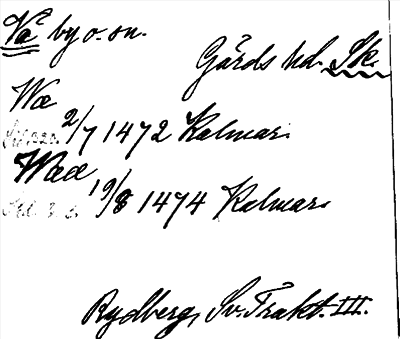 Vä by o. sn.
Gärds hd. Sk.
Wæ
2/7 1472 Kalmar.
Wææ
19/8 1474 Kalmar.
Rydberg, Sv. Trakt. III.